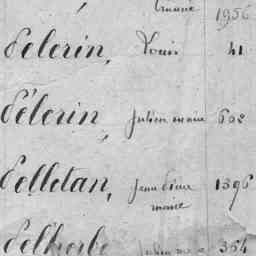 1956
Pelerin, Louis 41
Pélerin, Julien marie 602
Pelletan, Jean Pierre 1396
marie
Julien marie 364